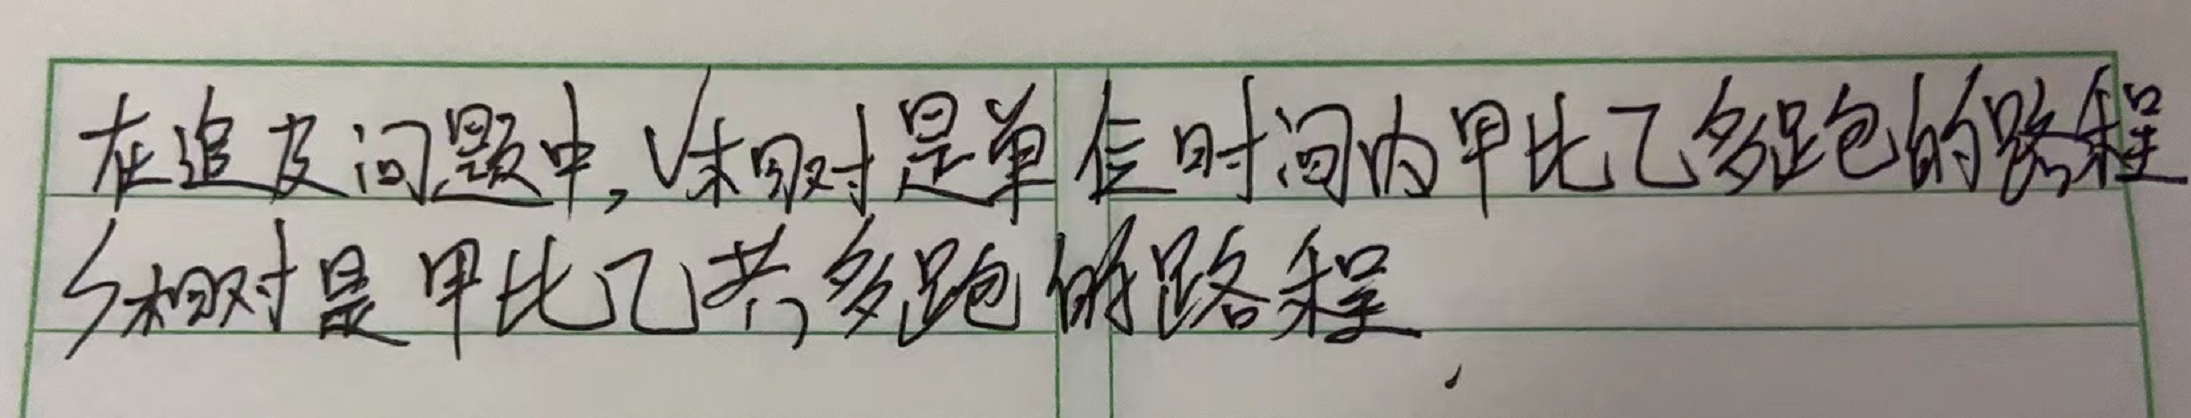 在追及问题中,V相对是单位时间内甲比乙多跑的路程
S相对是甲比乙共多跑的路程.